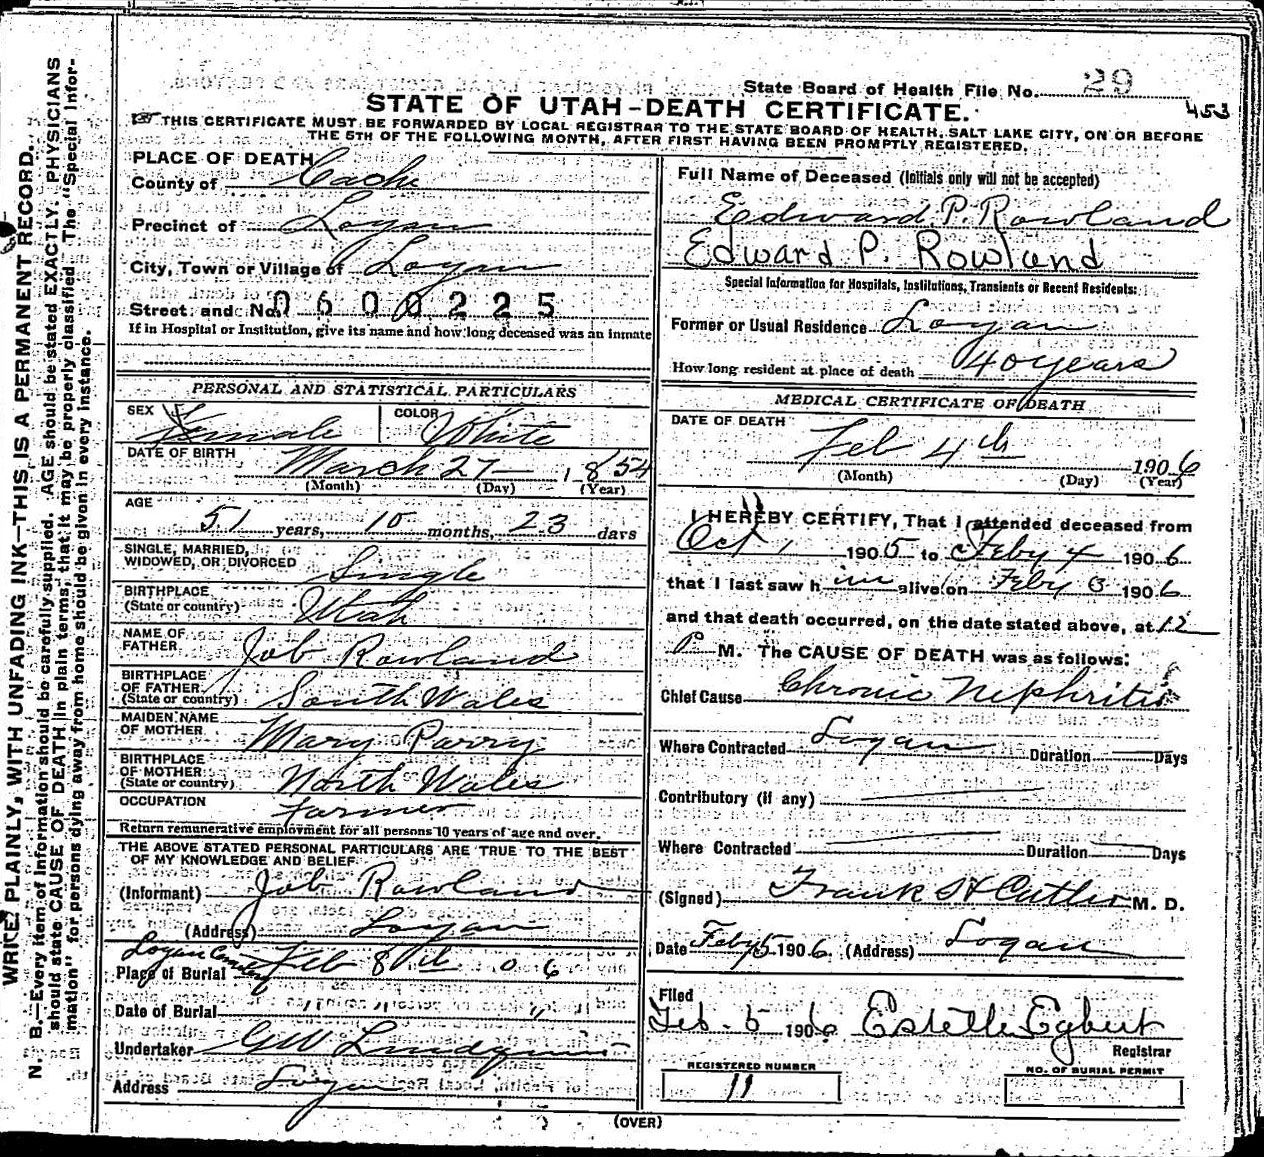 State Board of Health File No. 29
453
STATE OF UTAH-DEATH CERTIFICATE.
THIS CERTIFICATE MUST BE FORWARDED BY LOCAL REGISTRAR TO THE STATE BOARD OF HEALTH, SALT LAKE CITY, ON OR BEFORE
THE 5TH OF THE FOLLOWING MONTH, AFTER FIRST HAVING BEEN PROMPTLY REGISTERED.
WRITE PLAINLY, WITH UNFADING INK—THIS IS A PERMANENT RECORD.
N. B.—Every item of Information should be carefully supplied. AGE should be stated EXACTLY. PHYSICIANS
should state CAUSE OF DEATH in plain terms, that it may be properly classified. The "Special Infor-
mation" for persons dying away from home should be given in every instance.
PLACE OF DEATH
County of Cache
Precinct of Logan
City, Town or Village of Logan
Street and No. 0600225
If in Hospital or Institution, give its name and how long deceased was an inmate
PERSONAL AND STATISTICAL PARTICULARS
SEX Female COLOR White
DATE OF BIRTH March 27 1854
(Month) (Day) (Year)
AGE
51 years, 10 months, 23 days
SINGLE, MARRIED,
WIDOWED, OR DIVORCED Single
BIRTHPLACE
(State or country) Utah
NAME OF
FATHER Job Rowland
BIRTHPLACE
OF FATHER
(State or country) South Wales
MAIDEN NAME
OF MOTHER Mary Parry
BIRTHPLACE
OF MOTHER
(State or country) North Wales
OCCUPATION Farmer
Return remunerative employment for all persons 10 years of age and over.
THE ABOVE STATED PERSONAL PARTICULARS ARE TRUE TO THE BEST
OF MY KNOWLEDGE AND BELIEF
(Informant) Job Rowland
(Address) Logan
Logan Cemetery
Place of Burial Feb 8th 06
Date of Burial " " "
Undertaker GW Lindquist
Address Logan
Full Name of Deceased (Initials only will not be accepted)
Edward P. Rowland
Edward P. Rowland
Special Information for Hospitals, Institutions, Transients or Recent Residents:
Former or Usual Residence Logan
How long resident at place of death 40 years
MEDICAL CERTIFICATE OF DEATH
DATE OF DEATH
Feb 4th 1906
(Month) (Day) (Year)
I HEREBY CERTIFY, That I attended deceased from
Oct 1 1905 to Feby 4 1906
that I last saw him alive on Feby 3 1906
and that death occurred, on the date stated above, at 12
P M. The CAUSE OF DEATH was as follows:
Chief Cause Chronic Nephritis
Where Contracted Logan Duration Days
Contributory (if any)
Where Contracted Duration Days
(Signed) Frank H Cutler M. D.
Date Feby 5 1906 (Address) Logan
Filed
Feb. 5 1906 Estelle Egbert
Registrar
REGISTERED NUMBER
11
NO. OF BURIAL PERMIT
(OVER)